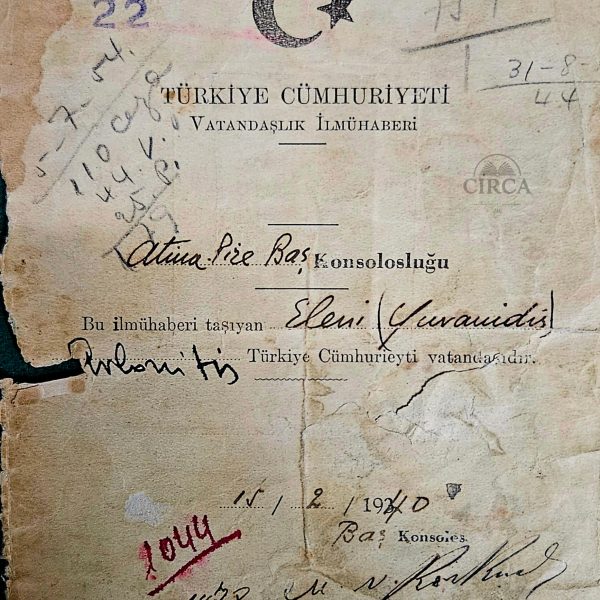 22
31-8-
44
5-7-54.
110 ceza
44. V.
25 P.
79
TÜRKİYE CÜMHURİYETİ
VATANDAŞLIK İLMÜHABERİ
CIRCA
Atina-Pire Baş Konsolosluğu
Bu ilmühaberi taşıyan Eleni (Yuvanidis)
Türkiye Cümhurieyti vatandaşıdır.
15 / 2 / 1940
Baş Konsolos
1044